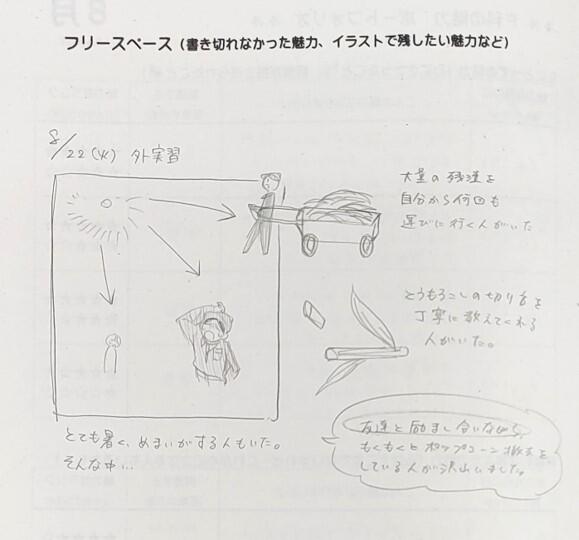 フリースペース（書き切れなかった魅力、イラストで残したい魅力など）
8/22(火) 外実習
大量の残渣を
自分から何回も
運びに行く人がいた
とうもろこしの切り方を
丁寧に教えてくれる
人がいた。
とても暑く、めまいがする人もいた。
そんな中…
友達と励まし合いながら、
もくもくとポップコーン撤去を
している人が沢山いました。